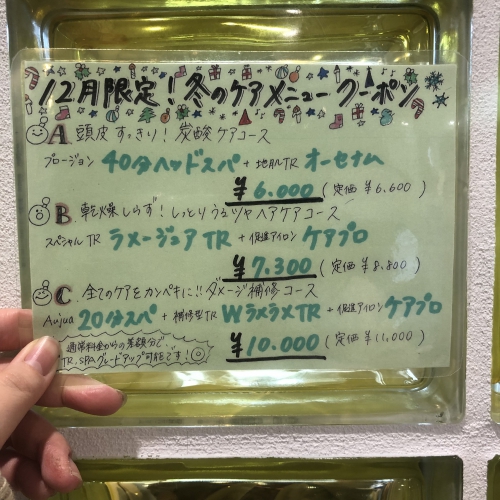 12月限定！冬のケアメニュークーポン
A 頭皮すっきり！炭酸ケアコース
プロージョン 40分ヘッドスパ + 地肌TR オーセナム
¥6.000 (定価 ¥6.600)
B 乾燥しらず！しっとりうるツヤヘアケアコース
スペシャルTR ラメージュアTR + 促進アイロン ケアプロ
¥7.300 (定価 ¥8.800)
C 全てのケアをカンペキに!! ダメージ補修コース
Aujua 20分スパ + 補修型TR WラメラメTR + 促進アイロン ケアプロ
¥10.000 (定価 ¥11,000)
通常料金からの差額分で、
TR.SPAグレードアップ可能です！